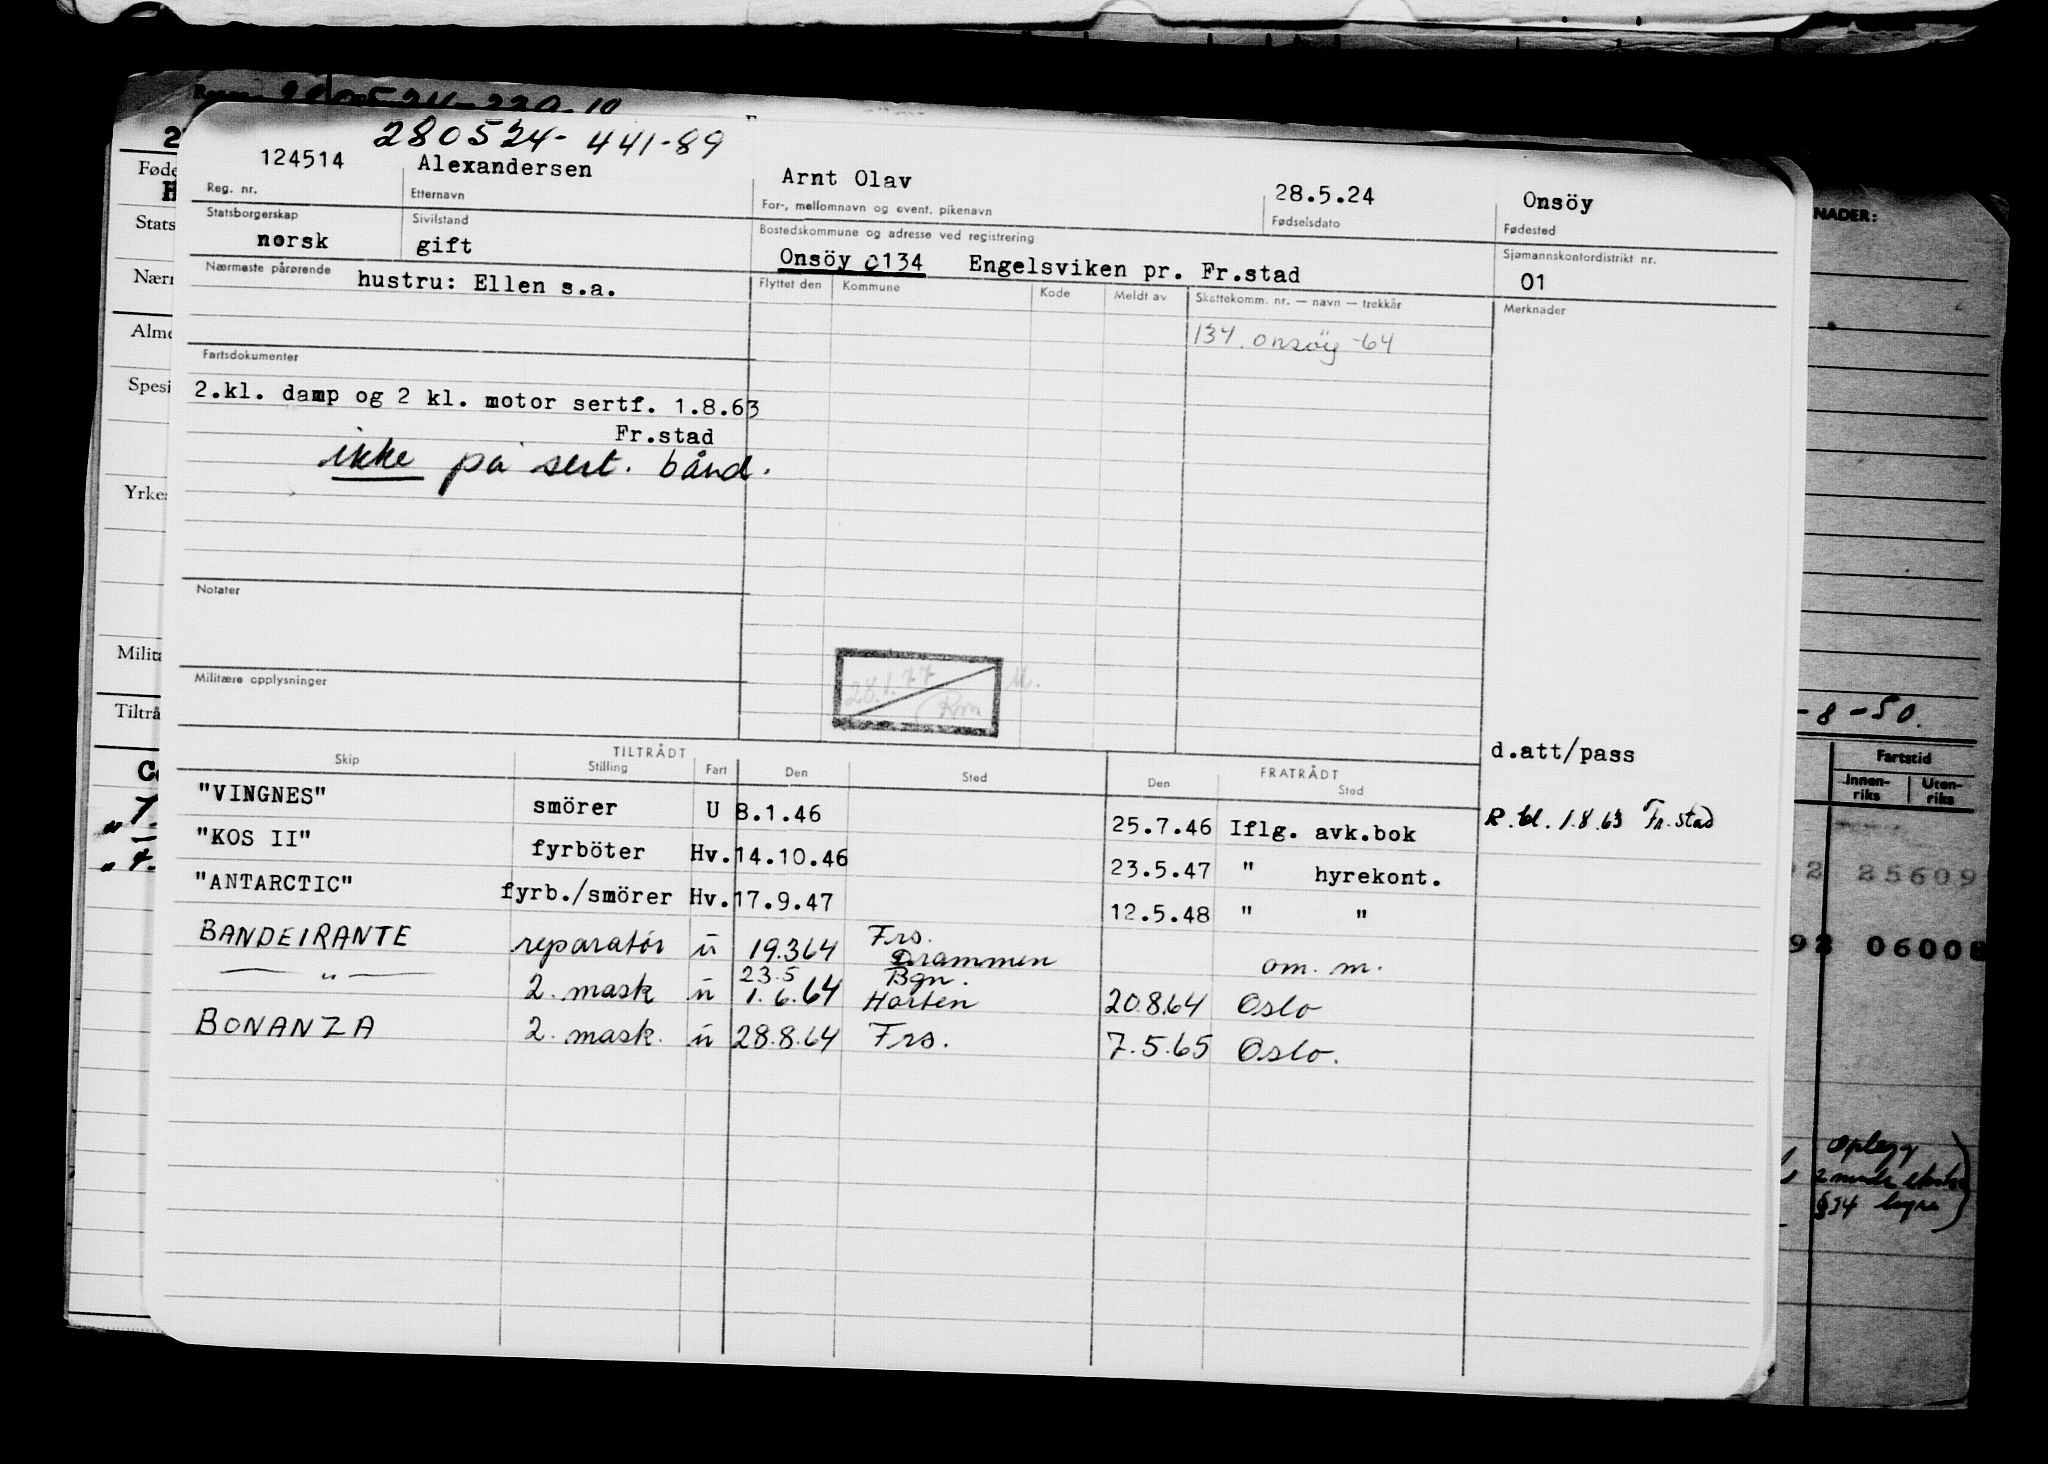 280524-441-89
124514 Alexandersen Arnt Olav 28.5.24 Onsöy
Reg. nr. Etternavn For-, mellomnavn og event. pikenavn Fødselsdato Fødested
Statsborgerskap Sivilstand Bostedskommune og adresse ved registrering Sjømannskontordistrikt nr.
norsk gift Onsöy 0134 Engelsviken pr. Fr.stad 01
Nærmeste pårørende hustru: Ellen s.a.
Flyttet den Kommune Kode Meldt av Skattekomm. nr. — navn — trekkår Merknader
134. onsöy -64
Fartsdokumenter
2.kl. damp og 2 kl. motor sertf. 1.8.63
Fr.stad
ikke på sert. bånd.
Notater
28.1.77
Rm
Militære opplysninger
d.att/pass
TILTRÅDT FRATRÅDT
Skip Stilling Fart Den Sted Den Sted
"VINGNES" smörer U 8.1.46 25.7.46 Iflg. avk.bok R.bl. 1.8.63 Fr.stad
"KOS II" fyrböter Hv. 14.10.46 23.5.47 " hyrekont.
"ANTARCTIC" fyrb./smörer Hv. 17.9.47 12.5.48 " "
BANDEIRANTE reparatör u 19.364 Frs. Drammen om. m.
— " — 2. mask u 23.5 1.6.64 Bgn. Horten 20.8.64 Oslo
BONANZA 2. mask. u 28.8.64 Frs. 7.5.65 Oslo.
Føde
Stats
Nærn
Alme
Spesi
Yrke
Milita
Tiltrå
NADER:
-8-50.
Fartstid
Innen-riks Uten-riks
25609
0600
oplegg
§34